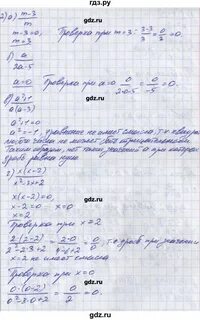 2) а) m-3 / m
m-3=0, Проверка при m=3: 3-3 / 3 = 0/3 = 0.
m=3
б) a / 2a-5
a=0 Проверка при a=0 0 / 2·0-5 = 0 / -5 = 0.
в) a²+1 / a(a-3)
a²+1=0
a²=-1, уравнение не имеет смысла, т.к квадрат
числа не может быть отрицательным.
Таким образом, нет таких значений a при которых
дробь равна нулю.
г) x(x-2) / x²-3x+2
x(x-2)=0,
x-2=0 x=0
x=2
Проверка при x=2
2·(2-2) / 2²-3·2+2 = 2·0 / 4-6+2 = 0/0 т.к дробь при значении
x=2 не имеет смысла.
Проверка при x=0
0·(0-2) / 0²-3·0+2 = 0/2 = 0.
gdz.ru